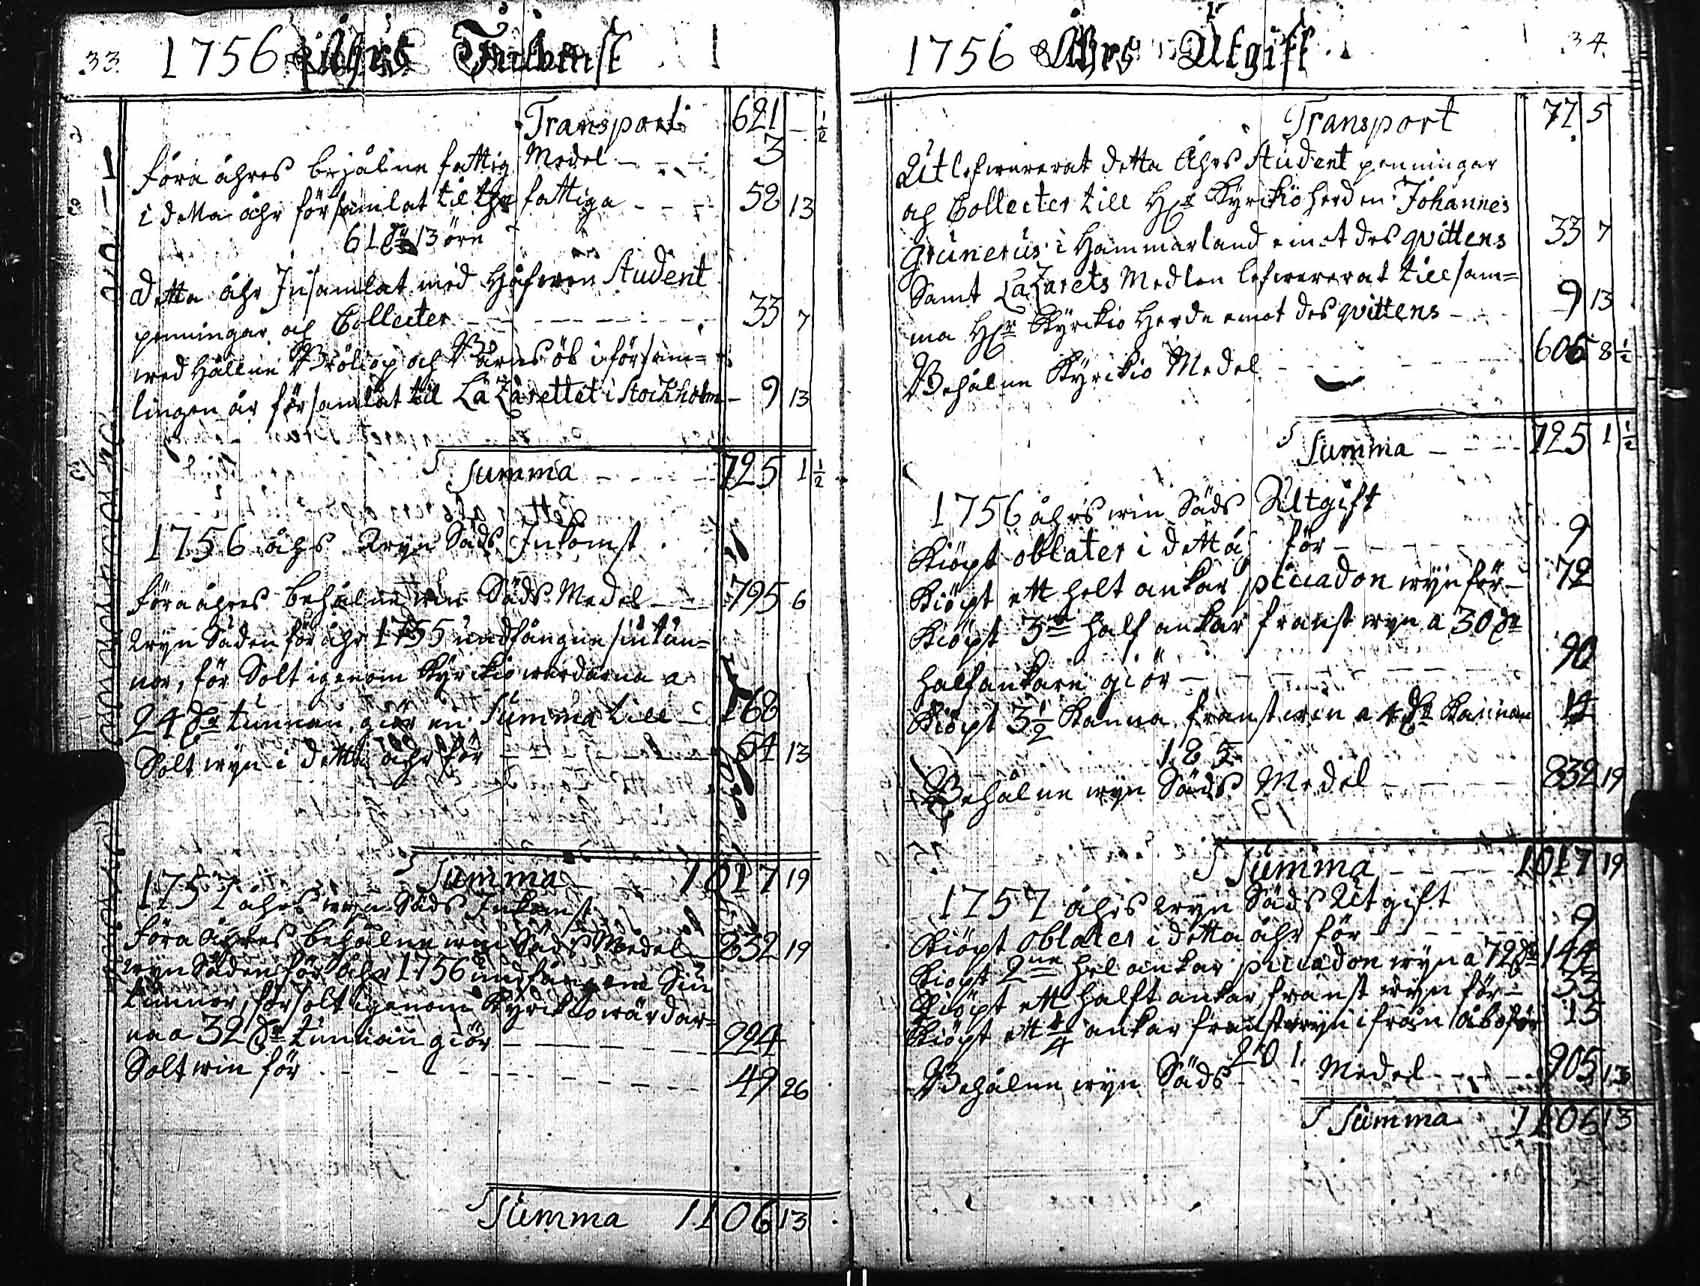 33. 1756 Åhrs Inkomst
Transport 621 – ½
Föra åhres behålne fattig Medel 3
i detta åhr församlat til the fattiga 52 13
61 dr 13 öre
Detta åhr Insamlat med Håfwen Student
penningar och Collecter 33 7
wid hållne Brölop och Barns öl i försam=
lingen är församlat til Lazarettet i Stockholm 9 13
Summa 725 1 ½
1756 åhrs wyn Säds Inkomst
föra åhres behålne win Säds Medel 795 6
wyn Säden för åhr 1755 undfångne siu tun=
nor, för Solt igenom Kyrckiowärdarna a
24 dr tunnan giör en Summa till 168
Solt wyn i detta åhr för 54 13
Summa 1017 19
1757 åhrs wyn Säds Inkomst
föra åhres behålne win Säds Medel 832 19
wyn Säden för åhr 1756 undfångne Siu
tunnor, försolt igenom Kyrckiowärdar=
na a 32 dr tunnan giör 224
Solt win för 49 26
Summa 1106 13
1756 Åhrs Utgift 34.
Transport 77 5
Utlefwererat detta åhrs Student penningar
och Collecter till Hr Kyrckioherden Johannes
Grunerus i Hammarland emot des qvittens 33 7
Samt Lazarets Medlen lefwererat till sam=
ma Hr Kyrckio Herde emot des qvittens 9 13
Behålne Kyrckio Medel 605 8 ½
Summa 725 1 ½
1756 åhrs win Säds Utgift
Kiöpt oblater i detta åhr för 9
Kiöpt ett helt ankar piccadon wyn för 72
Kiöpt 3ne half ankar franst wyn a 30 dr
halfankare giör 90
Kiöpt 3½ Kanna franst win a 4 dr Kannan 14
185
Behålne wyn Säds Medel 832 19
Summa 1017 19
1757 åhrs wyn Säds Utgift
Kiöpt oblater i detta åhr för 9
Kiöpt 2ne hel ankar piccadon wyn a 72 dr 144
Kiöpt ett halft ankar franst wyn för 33
Kiöpt ett ¼ ankar franst wyn ifrån åbo för 15
201
Behålne wyn Säds Medel 905 13
Summa 1106 13